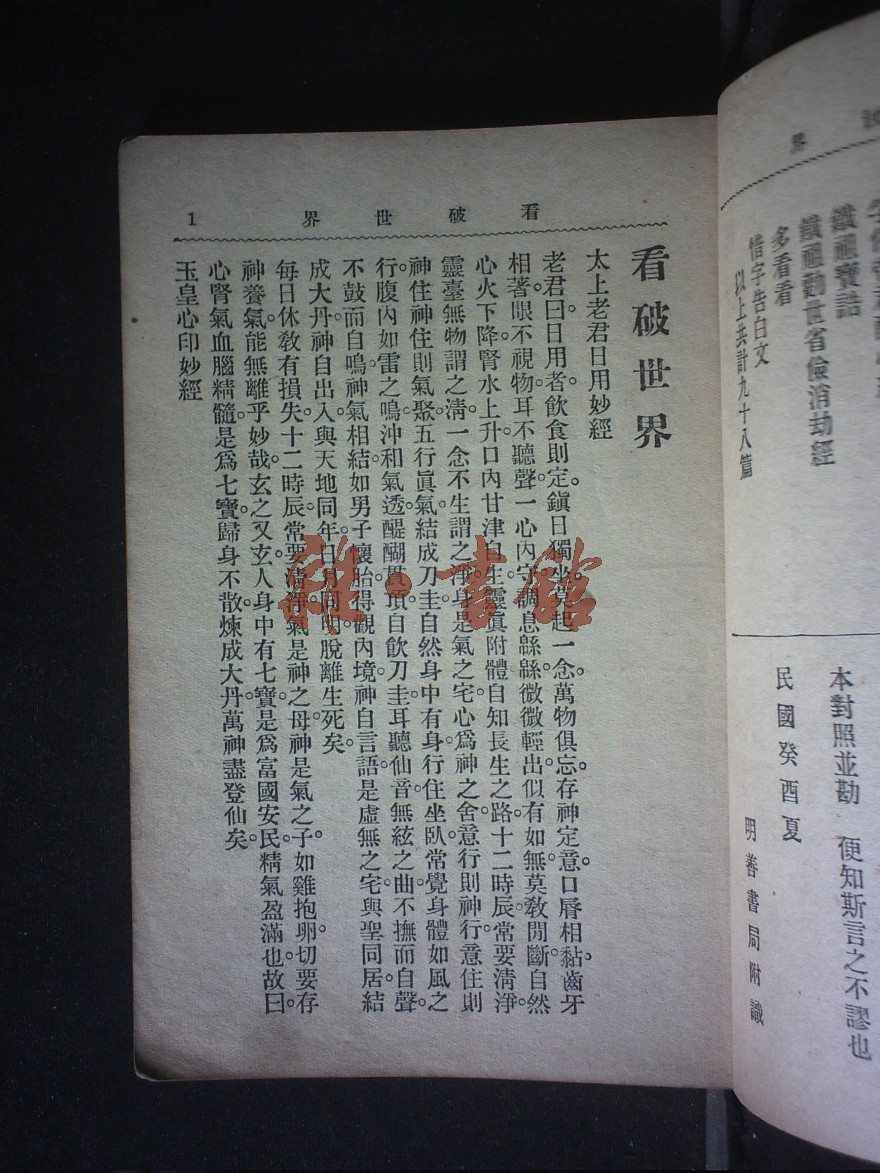 界
鐵祖寶誥
鐵祖勸世省儉消劫經
多看看
惜字告白文
以上共計九十八篇
本對照並勘　便知斯言之不謬也
民國癸酉夏
明善書局附識
看破世界　1
看破世界
太上老君日用妙經
老君曰。日用者。飲食則定。鎮日獨坐。莫起一念。萬物俱忘。存神定意。口脣相黏。齒牙
相著。眼不視物。耳不聽聲。一心內守。調息緜緜。微微輕出。似有如無。莫教閒斷。自然
心火下降。腎水上升。口內甘津自生。靈眞附體。自知長生之路。十二時辰。常要清淨。
靈臺無物謂之清。一念不生謂之淨。身是氣之宅。心爲神之舍。意行則神行。意住則
神住。神住則氣聚。五行眞氣。結成刀圭。自然身中有身。行住坐臥。常覺身體如風之
行。腹內如雷之鳴。沖和氣透。醍醐貫頂。自飲刀圭。耳聽仙音。無絃之曲。不撫而自聲。
不鼓而自鳴。神氣相結。如男子懷胎。得觀內境。神自言語。是虛無之宅。與聖同居。結
成大丹。神自出入。與天地同年。日月同明。脫離生死矣。
每日休教有損失。十二時辰。常要清淨。氣是神之母。神是氣之子。如雞抱卵。切要存
神養氣。能無離乎。妙哉。玄之又玄。人身中有七寶。是爲富國安民。精氣盈滿也。故曰。
心腎氣血腦精髓。是爲七寶。歸身不散。煉成大丹。萬神盡登仙矣。
玉皇心印妙經
雜·書館